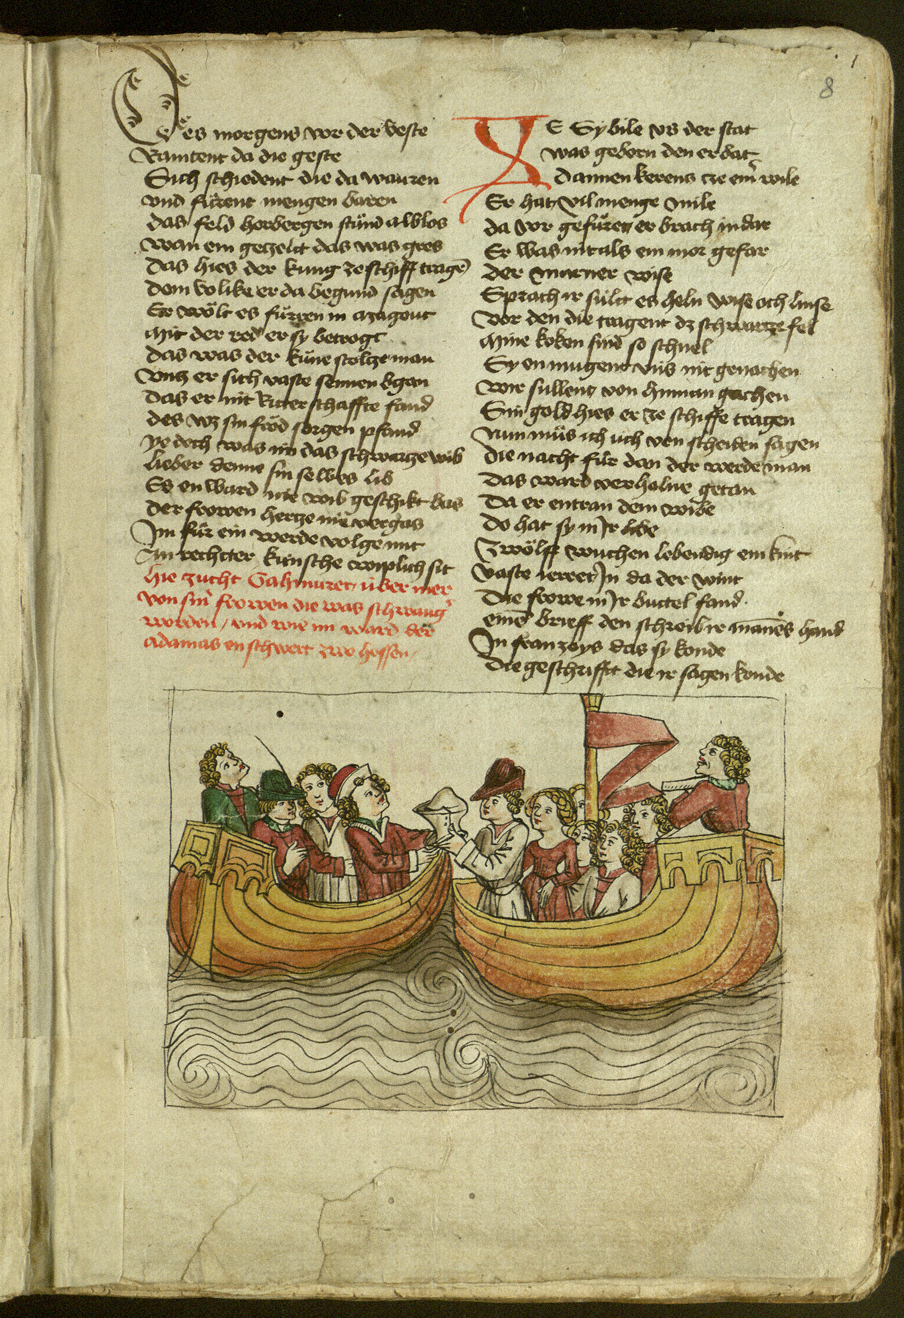 Des morgens vor der veste
Ramtent da die geste
Sich schiedent die da wauren
vnd fůrent mengen baren
das feld herbergen stůnd alblos
wan ein gezelt das was gros
Das hies der kung ze schiff tragē
dem volike er da begund sagen
Er wölt es fůren in azagout
Mit der red er sy betrogt
das was der kůne stoltze man
vntz er sich vaste sennen bgan
das er nit Ritterschaffte fand
des wz sin fröd sorgen pfand
ye doch was im das schwartze wib
lieber denne sin selbes lib
Es en ward nie wib geschikt bas
der frowen hertze nie vergas
Im fůr ein werde volge mit
An rechtter kůnsche wiplich sit
hie zucht Gahmuret über mer
von sinr frowen die was schwang
worden / vnd wie im ward der
adamas en schwert zwo hossen
8
1
E Sybile vs der stat
was geborn den er bat
dannen kerens ze einr wile
Er hat vil menge mile
da vor gefůren er brach in dar
Er was nit als ein mor gefar
der marner wise
Sprach ir sůlt es heln wise och linse
vor den die tragent dz schwartze fel
Mine koken sind so schnel
Sy en mugent vns nit genachen
wir sullent von hinnan gachen
Sin gold hies er ze schiffe tragen
nun můs ich uch von scheiden sagen
die nacht fůr dan der werde man
das ward verholne getan
Da er entran dem wibe
do hat sy in Jr libe
Zwölff wuchen lebendig ein kint
vaste ierret In da der wint
Die frowe in Jr buttel fand
einē brieff den schreib ir mannes hand
In franzoys das sy konde
die geschrifft die ir sagen konde